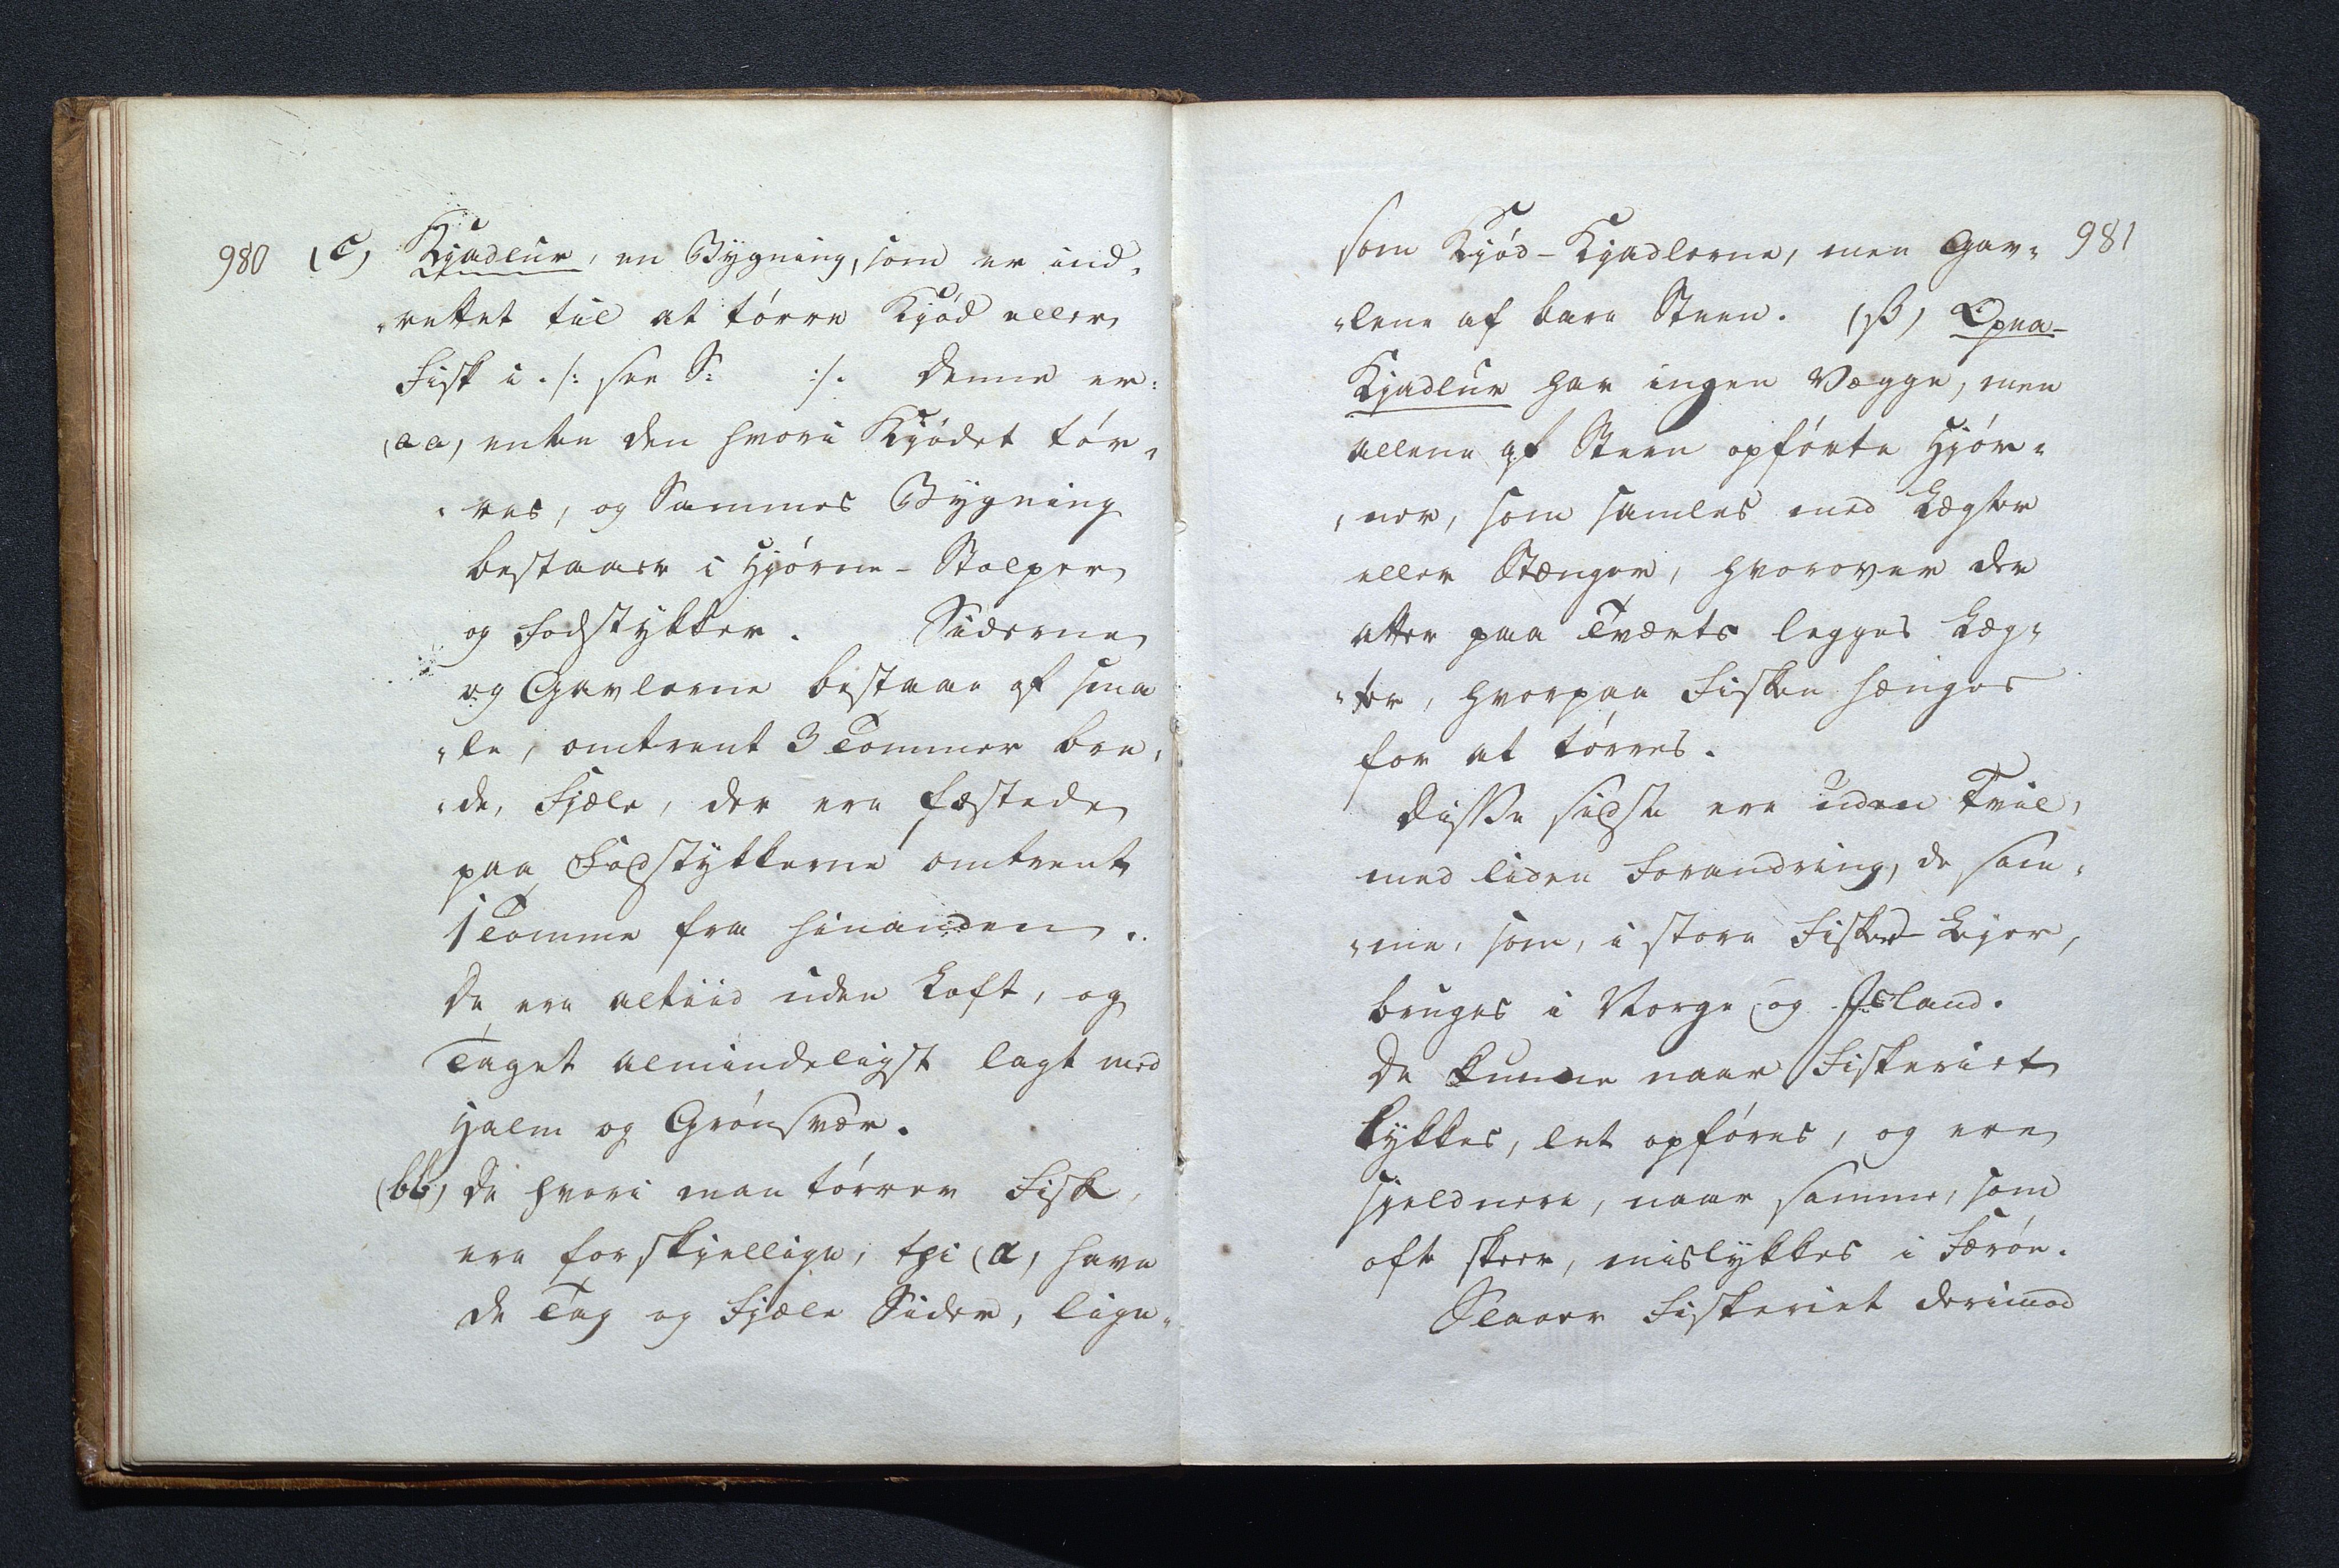 980 (c) Kjadlur, en Bÿgning, som er ind-
-rettet til at tørre Kjød eller
Fisk i. /: see S: :/. denne er:
(aa) enten den hvori Kjødet tør-
-res, og Sammes Bÿgning
bestaaer i Hjørne-Stolper
og Fodstÿkker. Siderne
og Gavlerne bestaae af sma
-le, omtrent 3 Tommer bre-
-de, Fjæle, der ere fæstede
paa Fodstÿkkerne omtrent
1 Tomme fra hinanden.
De ere altiid uden Loft, og
Taget almindeligst lagt med
Halm og Grønsvær.
(bb) De hvori man tørrer Fisk,
ere forskjellige, thi (α) have
de Tag og Fjæle Sider, lige-
som Kjød-Kjadlerne, men Gav- 981
-lene af bare Steen. (β) Opna-
Kjadlur har ingen Vægge, men
allene af Steen opførte Hjør-
-ner, som samles med Lægter
eller Stænger, hvorover der
atter paa Tværts legges Læg-
-ter, hvorpaa Fisken hænges
for at tørres.
Disse sidste ere uden Tvil,
med liden Forandring, de sam-
-me, som, i store Fisker-Lejer,
bruges i Norge og Island.
De kunne naar Fiskeriet
lykkes, let opføres, og ere
sjeldnere, naar samme, som
oft skeer, mislykkes i Færøe.
Slaaer Fiskeriet derimod